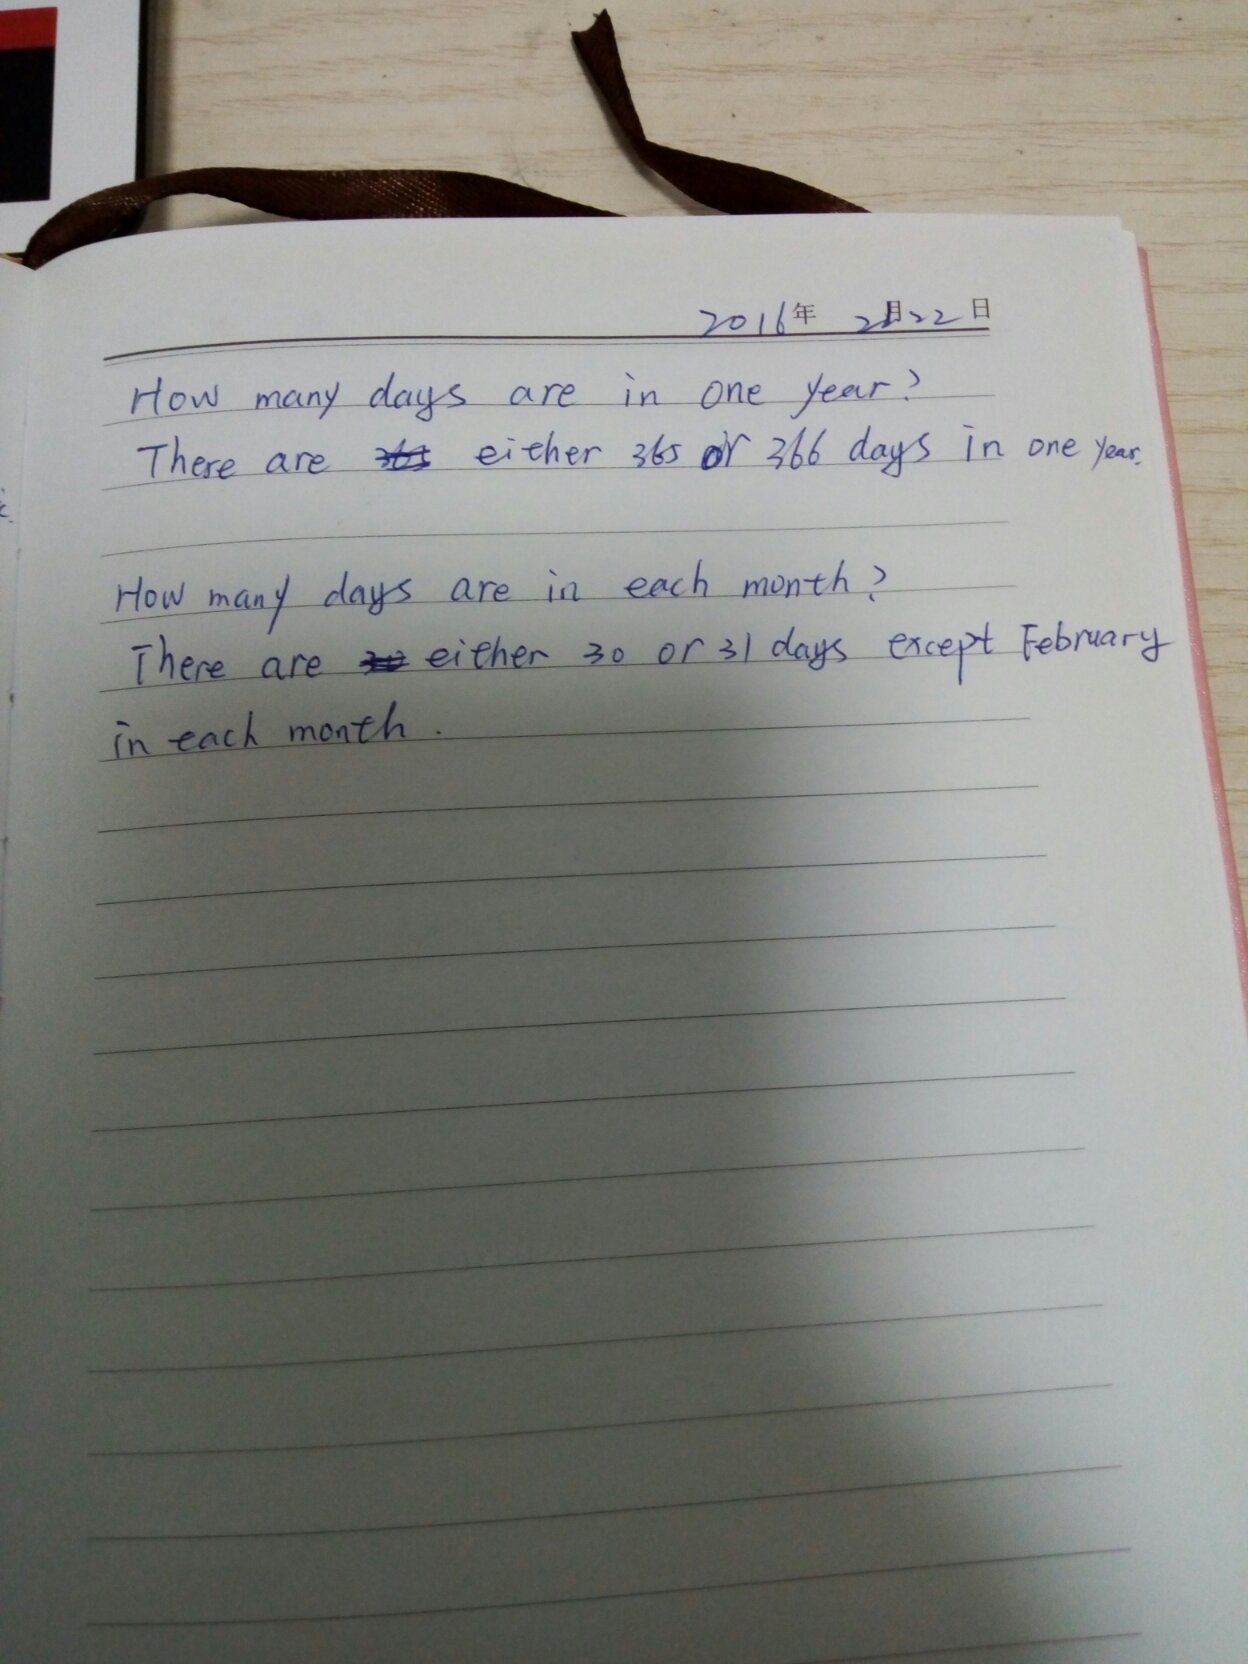 2016年 2月22日
How many days are in one year?
There are either 365 or 366 days in one year.
How many days are in each month?
There are either 30 or 31 days except February
in each month.